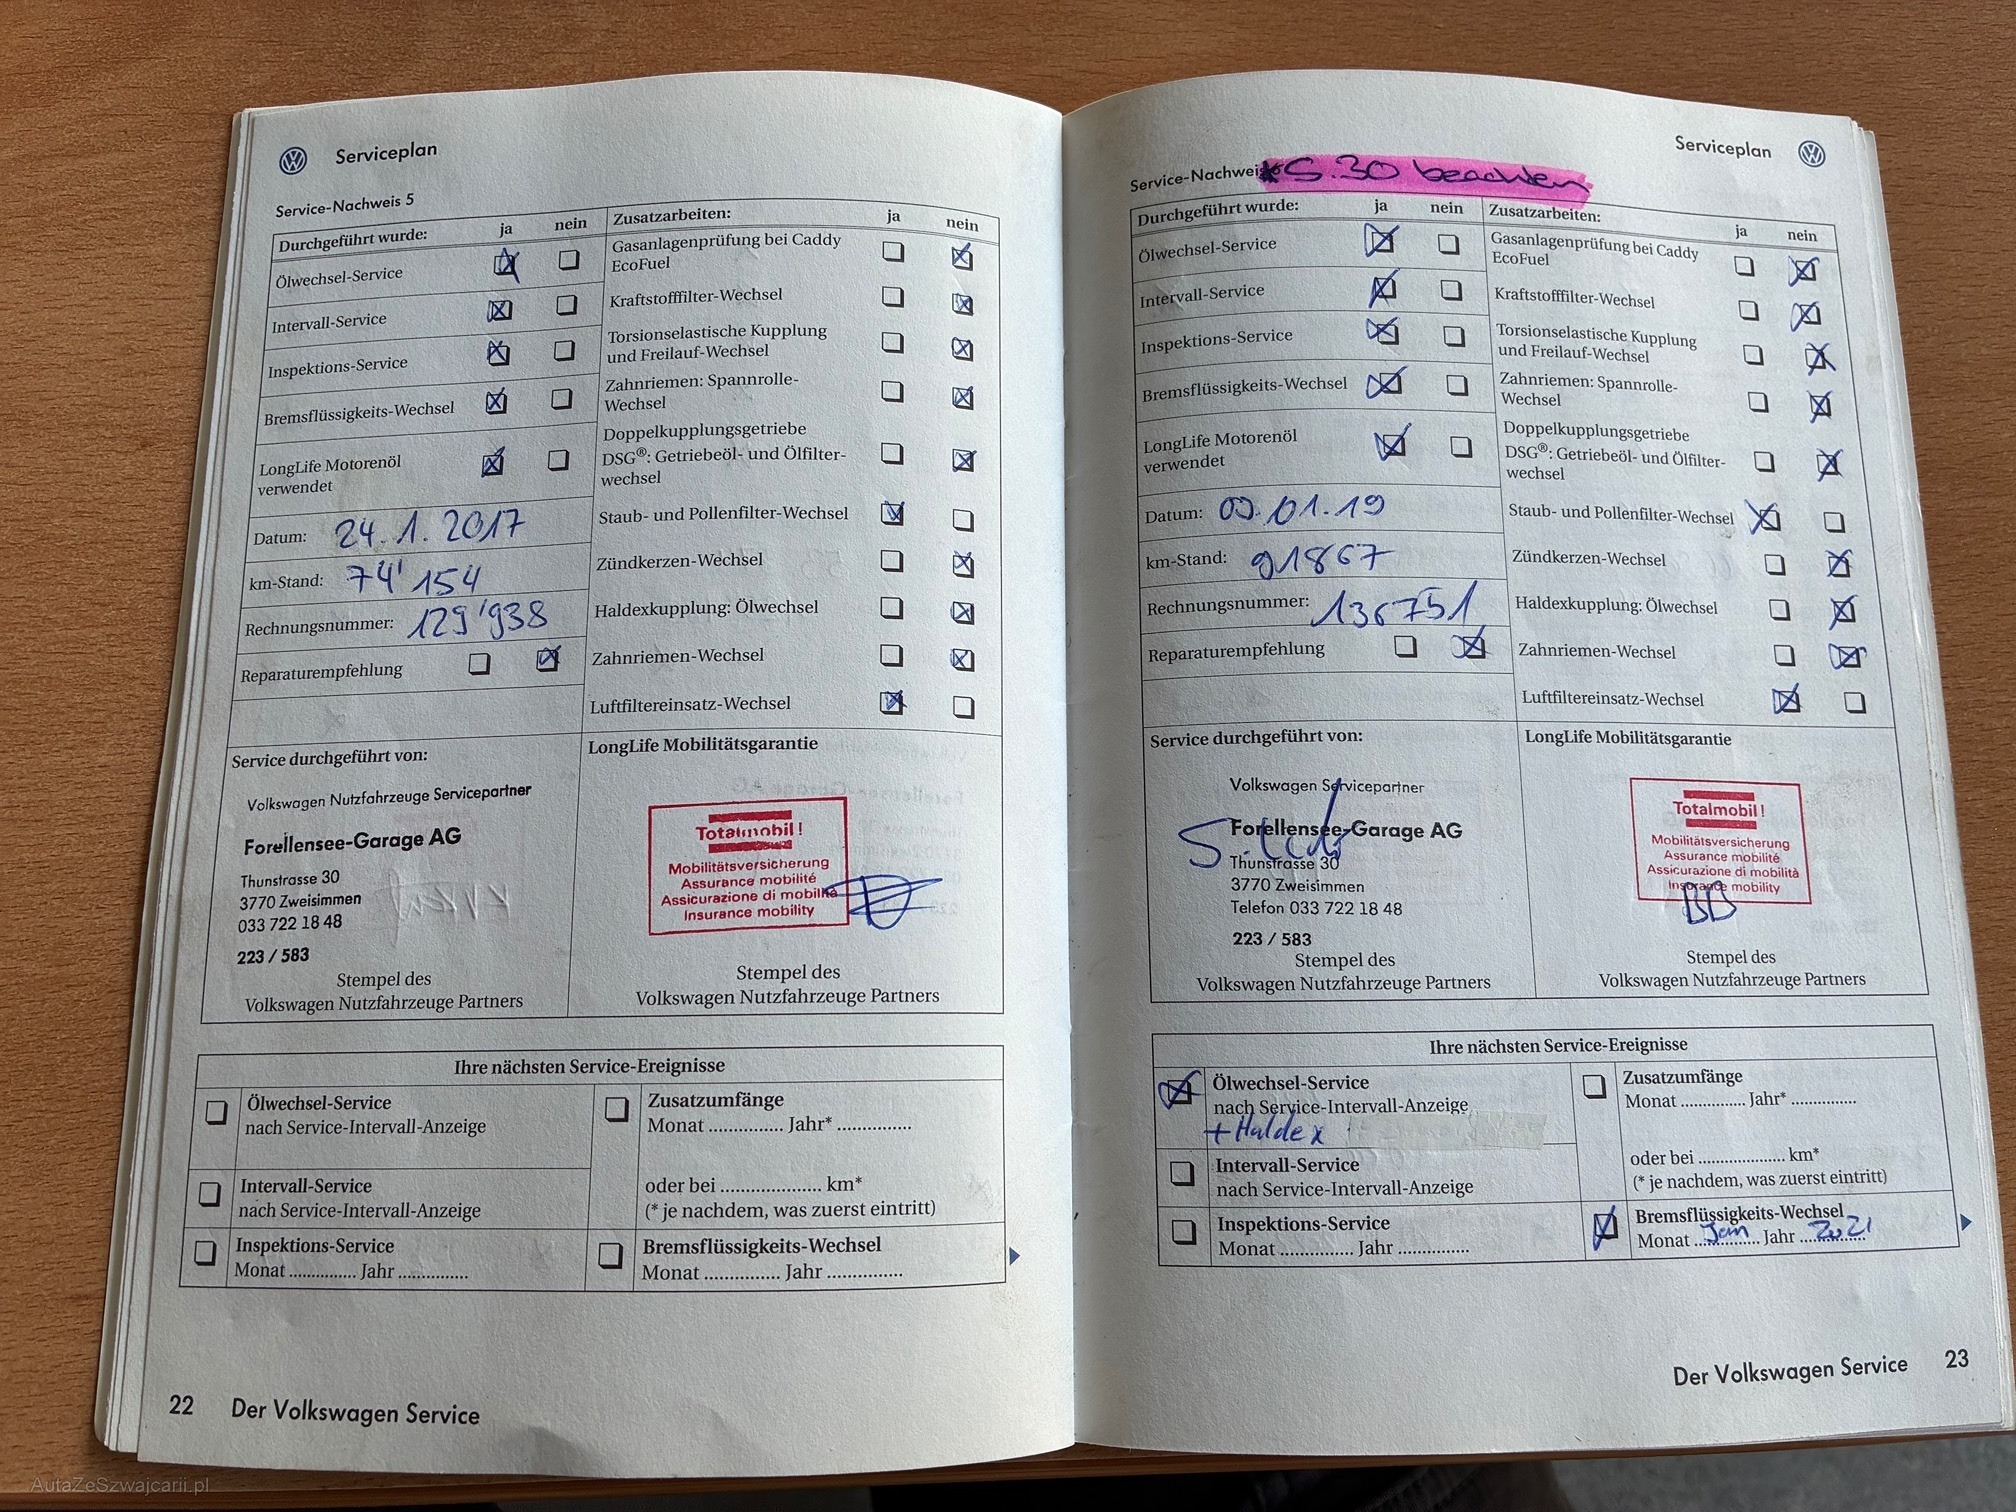 Serviceplan
Service-Nachweis 5
Durchgeführt wurde: ja nein
Ölwechsel-Service
Intervall-Service
Inspektions-Service
Bremsflüssigkeits-Wechsel
LongLife Motorenöl
verwendet
Datum: 24.1.2017
km-Stand: 74'154
Rechnungsnummer: 129'938
Reparaturempfehlung
Zusatzarbeiten: ja nein
Gasanlagenprüfung bei Caddy
EcoFuel
Kraftstofffilter-Wechsel
Torsionselastische Kupplung
und Freilauf-Wechsel
Zahnriemen: Spannrolle-
Wechsel
Doppelkupplungsgetriebe
DSG®: Getriebeöl- und Ölfilter-
wechsel
Staub- und Pollenfilter-Wechsel
Zündkerzen-Wechsel
Haldexkupplung: Ölwechsel
Zahnriemen-Wechsel
Luftfiltereinsatz-Wechsel
Service durchgeführt von:
Volkswagen Nutzfahrzeuge Servicepartner
Forellensee-Garage AG
Thunstrasse 30
3770 Zweisimmen
033 722 18 48
223 / 583
Stempel des
Volkswagen Nutzfahrzeuge Partners
LongLife Mobilitätsgarantie
Totalmobil!
Mobilitätsversicherung
Assurance mobilité
Assicurazione di mobilità
Insurance mobility
Stempel des
Volkswagen Nutzfahrzeuge Partners
Ihre nächsten Service-Ereignisse
Ölwechsel-Service
nach Service-Intervall-Anzeige
Intervall-Service
nach Service-Intervall-Anzeige
Inspektions-Service
Monat ............... Jahr ...............
Zusatzumfänge
Monat ............... Jahr* ...............
oder bei ..................... km*
(* je nachdem, was zuerst eintritt)
Bremsflüssigkeits-Wechsel
Monat ............... Jahr ...............
22 Der Volkswagen Service
Serviceplan
Service-Nachweis *S.30 beachten
Durchgeführt wurde: ja nein
Ölwechsel-Service
Intervall-Service
Inspektions-Service
Bremsflüssigkeits-Wechsel
LongLife Motorenöl
verwendet
Datum: 09.01.19
km-Stand: 91867
Rechnungsnummer: 136751
Reparaturempfehlung
Zusatzarbeiten: ja nein
Gasanlagenprüfung bei Caddy
EcoFuel
Kraftstofffilter-Wechsel
Torsionselastische Kupplung
und Freilauf-Wechsel
Zahnriemen: Spannrolle-
Wechsel
Doppelkupplungsgetriebe
DSG®: Getriebeöl- und Ölfilter-
wechsel
Staub- und Pollenfilter-Wechsel
Zündkerzen-Wechsel
Haldexkupplung: Ölwechsel
Zahnriemen-Wechsel
Luftfiltereinsatz-Wechsel
Service durchgeführt von:
Volkswagen Servicepartner
Forellensee-Garage AG
Thunstrasse 30
3770 Zweisimmen
Telefon 033 722 18 48
223 / 583
Stempel des
Volkswagen Nutzfahrzeuge Partners
LongLife Mobilitätsgarantie
Totalmobil!
Mobilitätsversicherung
Assurance mobilité
Assicurazione di mobilità
Insurance mobility
BB
Stempel des
Volkswagen Nutzfahrzeuge Partners
Ihre nächsten Service-Ereignisse
Ölwechsel-Service
nach Service-Intervall-Anzeige
+ Haldex
Intervall-Service
nach Service-Intervall-Anzeige
Inspektions-Service
Monat ............... Jahr ...............
Zusatzumfänge
Monat ............... Jahr* ...............
oder bei ..................... km*
(* je nachdem, was zuerst eintritt)
Bremsflüssigkeits-Wechsel
Monat Jan Jahr 2021
Der Volkswagen Service 23
AutaZeSzwajcarii.pl